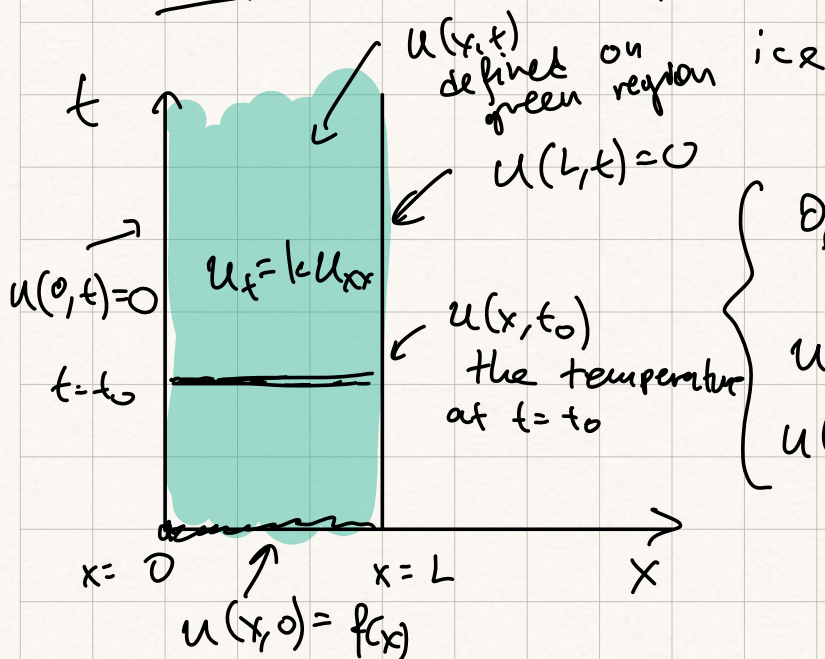 u(x,t)
defined on
green region
ice
t
u(L,t)=0
u(0,t)=0
u_t=ku_xx
u(x,t_0)
the temperature
at t=t_0
t=t_0
u
u(
x= 0
x=L
x
u(x,0)=f(x)